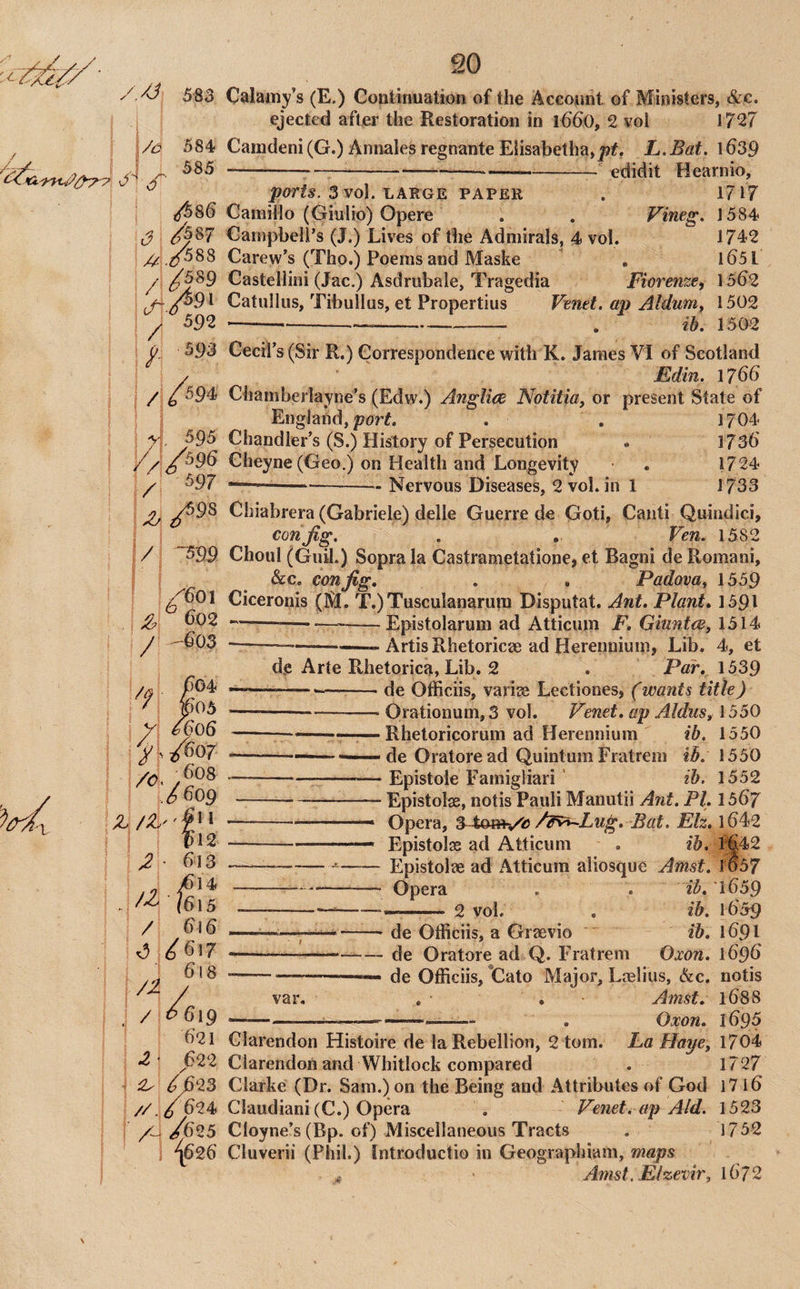 20
583 Calamy's (E.) Continuation of the Account of Ministers, &c.
ejected after the Restoration in 1660, 2 vol 1727
584 Camdeni (G.) Annales regnante Elisabetha, pt. L. Bat. 1639
585 ——— edidit Hearnio,
ports. 3 vol. LARGE PAPER . 1717
586 Camillo (Giulio) Opere . . Vineg. 1584
587 Campbell's (J.) Lives of the Admirals, 4 vol. 1742
588 Carew's (Tho.) Poems and Maske . 1651
589 Castellini (Jac.) Asdrubale, Tragedia Fiorenze, 1562
591 Catullus, Tibullus, et Propertius Venet. ap Aldum, 1502
592 ——— . ib. 1502
593 Cecil's (Sir R.) Correspondence with K. James VI of Scotland
Edin. 1766
594 Chamberlayne's (Edw.) Angliæ Notitia, or present State of
England, port. . . 1704
595 Chandler's (S.) History of Persecution . 1736
596 Cheyne (Geo.) on Health and Longevity . 1724
597 ——— Nervous Diseases, 2 vol. in 1 1733
598 Chiabrera (Gabriele) delle Guerre de Goti, Canti Quindici,
con fig. . . Ven. 1582
599 Choul (Guil.) Sopra la Castrametatione, et Bagni de Romani,
&c. con fig. . . Padova, 1559
601 Ciceronis (M. T.) Tusculanarum Disputat. Ant. Plant. 1591
602 ——— Epistolarum ad Atticum F. Giuntæ, 1514
603 ——— Artis Rhetoricæ ad Herennium, Lib. 4, et
de Arte Rhetorica, Lib. 2 . Par. 1539
604 ——— de Officiis, variæ Lectiones, (wants title)
605 ——— Orationum, 3 vol. Venet. ap Aldus, 1550
606 ——— Rhetoricorum ad Herennium ib. 1550
607 ——— de Oratore ad Quintum Fratrem ib. 1550
608 ——— Epistole Famigliari ib. 1552
609 ——— Epistolæ, notis Pauli Manutii Ant. Pl. 1567
611 ——— Opera, 3 tom. Lug. Bat. Elz. 1642
612 ——— Epistolæ ad Atticum . ib. 1642
613 ——— Epistolæ ad Atticum aliosque Amst. 1657
614 ——— Opera . . ib. 1659
615 ——— 2 vol. . ib. 1659
616 ——— de Officiis, a Grævio ib. 1691
617 ——— de Oratore ad Q. Fratrem Oxon. 1696
618 ——— de Officiis, Cato Major, Lælius, &c. notis
var. . . Amst. 1688
619 ——— . Oxon. 1695
621 Clarendon Histoire de la Rebellion, 2 tom. La Haye, 1704
622 Clarendon and Whitlock compared . 1727
623 Clarke (Dr. Sam.) on the Being and Attributes of God 1716
624 Claudiani (C.) Opera . Venet. ap Ald. 1523
625 Cloyne's (Bp. of) Miscellaneous Tracts . 1752
626 Cluverii (Phil.) Introductio in Geographiam, maps
Amst. Elzevir, 1672